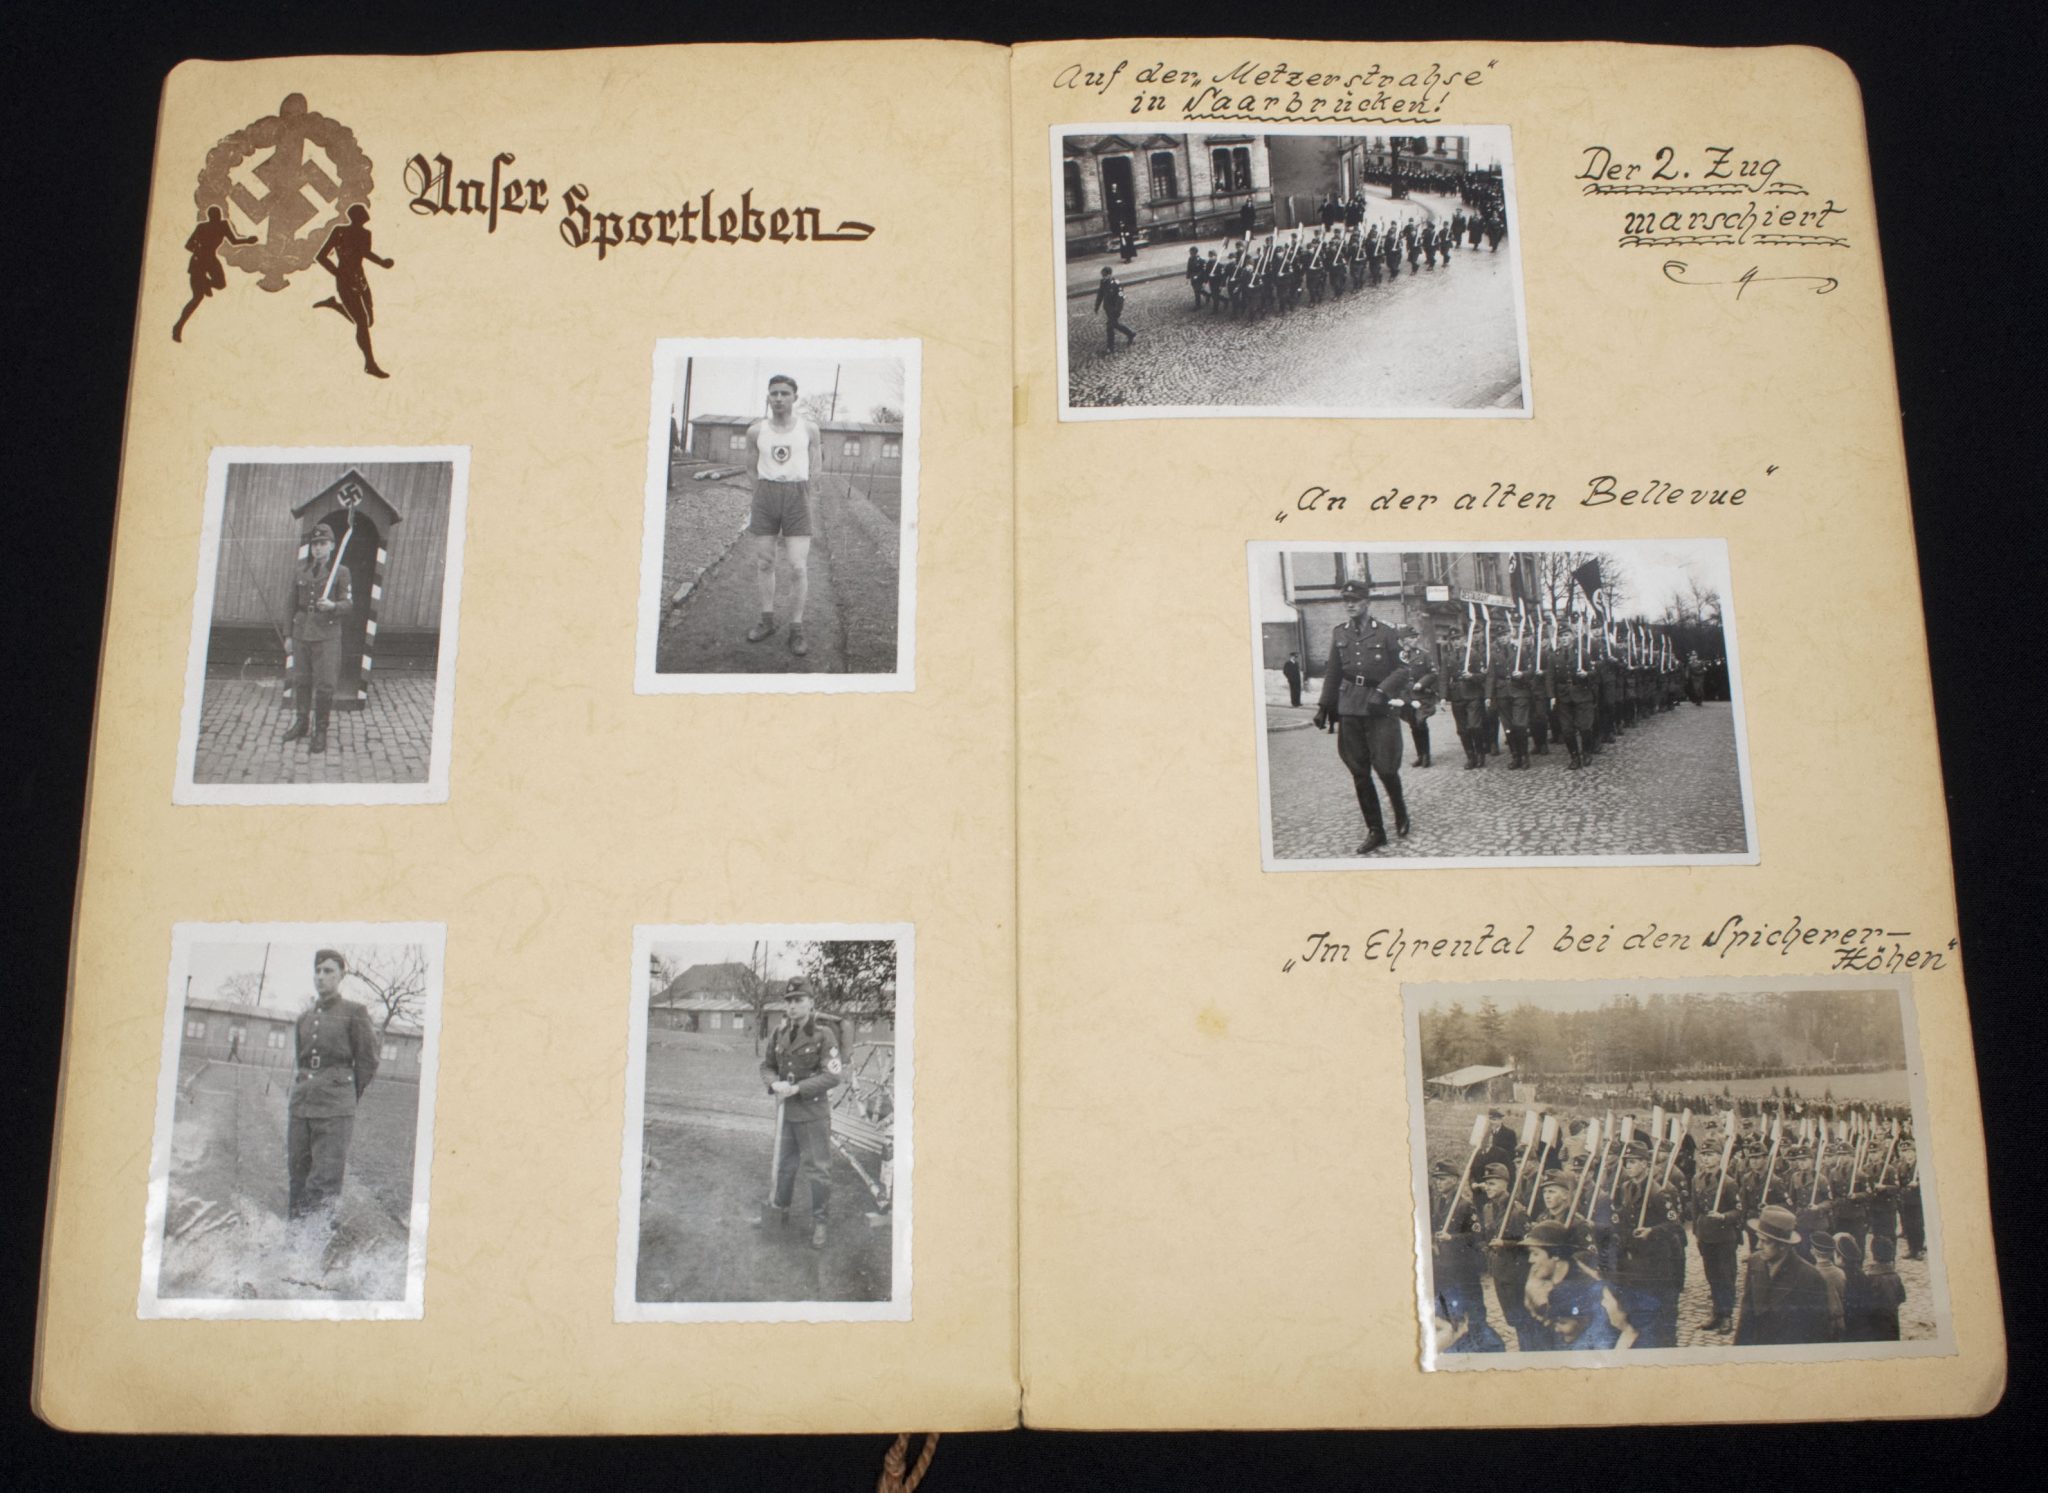 Unser
Sportleben
Auf der „Metzerstrahse“
in Saarbrücken!
Der 2. Zug
marschiert
„An der alten Bellevue“
„Im Ehrental bei den Spicherer-
Höhen“